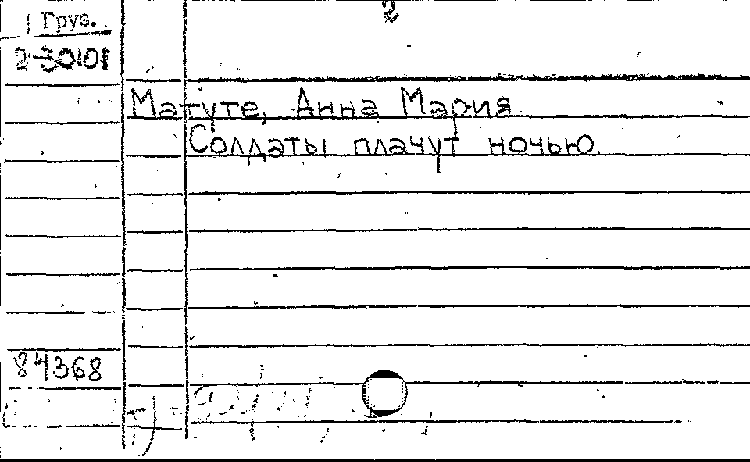 2
Груз.
2-30101
Матуте, Анна Мария
Солдаты плачут ночью.
84368